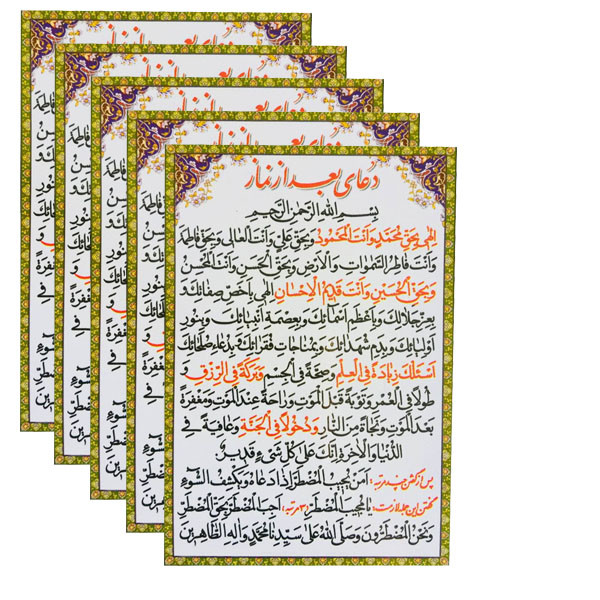 دعای بعد از نماز
بِسْمِ اللهِ الرَّحْمنِ الرَّحیمِ
اِلهی بِحَقِّ مُحَمَّدٍ وَاَنْتَ الْمَحْمُودُ وَبِحَقِّ عَلِیٍّ وَاَنْتَ الْعالی وَبِحَقِّ فاطِمَةَ
وَاَنْتَ فاطِرُ السَّمواتِ وَالْاَرْضِ وَبِحَقِّ الْحَسَنِ وَاَنْتَ الْمُحْسِنُ
وَبِحَقِّ الْحُسَیْنِ وَاَنْتَ قَدیمُ الْاِحْسانِ اِلهی بِاَخَصِّ صِفاتِكَ وَ
بِعِزِّ جَلالِكَ وَبِاَعْظَمِ اَسْمائِكَ وَبِعِصْمَةِ اَنْبِیائِكَ وَبِنُورِ
اَوْلِیائِكَ وَبِدَمِ شُهَدائِكَ وَبِمُناجاتِ فُقَرائِكَ وَبِدُعاءِ صُلَحائِكَ
اَسْئَلُكَ زِیادَةً فِی الْعِلْمِ وَصِحَّةً فِی الْجِسْمِ وَبَرَكَةً فِی الرِّزْقِ وَ
طُولاً فِی الْعُمْرِ وَتَوْبَةً قَبْلَ الْمَوْتِ وَراحَةً عِنْدَ الْمَوْتِ وَمَغْفِرَةً
بَعْدَ الْمَوْتِ وَنَجاةً مِنَ النّارِ وَدُخُولاً فِی الْجَنَّةِ وَعافِیَةً فِی
الدُّنْیا وَالْاخِرَةِ اِنَّكَ عَلی كُلِّ شَیْءٍ قَدیرٌ
پس از گفتن چند مرتبه: اَمَّنْ یُجیبُ الْمُضْطَرَّ اِذا دَعاهُ وَیَكْشِفُ السُّوءَ
گفتن این جمله لازمست: یا مُجیبَ الْمُضْطَرِّ (۳ مرتبه) اَجِبِ الْمُضْطَرَّ بِحَقِّ الْمُضْطَرِّ
وَنَحْنُ الْمُضْطَرُّونَ وَصَلَّی اللهُ عَلی سَیِّدِنا مُحَمَّدٍ وَالِهِ الطّاهِرینَ